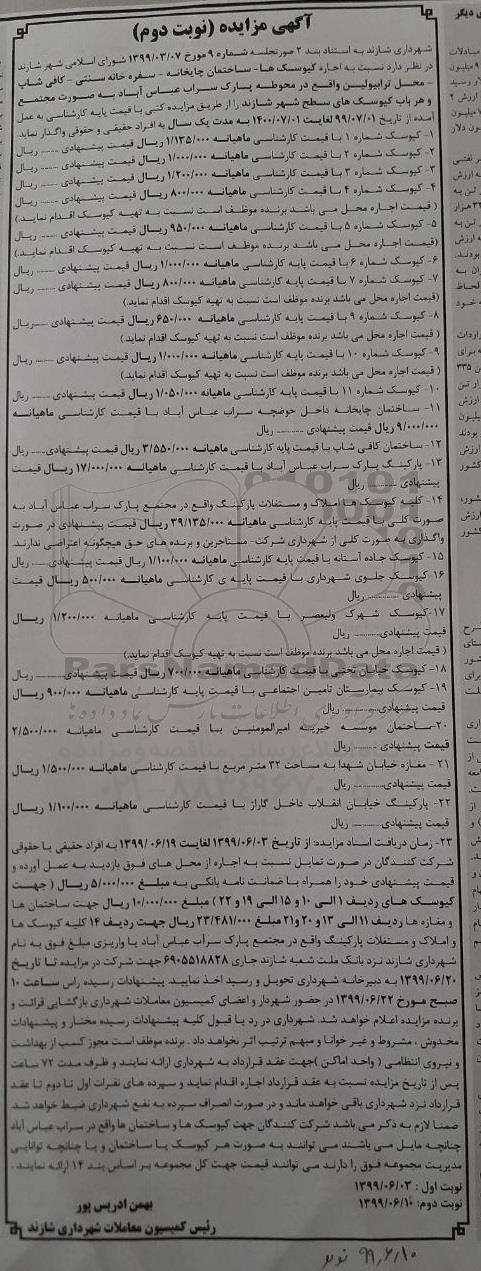 آگهی مزایده (نوبت دوم)
شهرداری شازند به استناد بند ۲ صورتجلسه شماره ۹ مورخ ۱۳۹۹/۰۳/۰۷ شورای اسلامی شهر شازند
در نظر دارد نسبت به اجاره کیوسک ها- ساختمان چایخانه - سفره خانه سنتی - کافی شاپ
- محل ترامپولین واقع در محوطه پارک سراب عباس آباد به صورت مجتمع
و هر باب کیوسک های سطح شهر شازند را از طریق مزایده کتبی با قیمت پایه کارشناسی به عمل
آمده از تاریخ ۹۹/۰۷/۰۱ لغایت ۱۴۰۰/۰۷/۰۱ به مدت یک سال به افراد حقیقی و حقوقی واگذار نماید.
۱- کیوسک شماره ۱ با قیمت کارشناسی ماهیانه ۱/۱۳۵/۰۰۰ ریال قیمت پیشنهادی ......... ریال
۲- کیوسک شماره ۲ با قیمت کارشناسی ماهیانه ۱/۰۰۰/۰۰۰ ریال قیمت پیشنهادی ......... ریال
۳- کیوسک شماره ۳ با قیمت کارشناسی ماهیانه ۱/۲۰۰/۰۰۰ ریال قیمت پیشنهادی ......... ریال
۴- کیوسک شماره ۴ با قیمت پایه کارشناسی ماهیانه ۸۰۰/۰۰۰ ریال قیمت پیشنهادی ......... ریال
( قیمت اجاره محل می باشد برنده موظف است نسبت به تهیه کیوسک اقدام نماید.)
۵- کیوسک شماره ۵ با قیمت کارشناسی ماهیانه ۹۵۰/۰۰۰ ریال قیمت پیشنهادی ......... ریال
(قیمت اجاره محل می باشد برنده موظف است نسبت به تهیه کیوسک اقدام نماید.)
۶- کیوسک شماره ۶ با قیمت پایه کارشناسی ماهیانه ۱/۰۰۰/۰۰۰ ریال قیمت پیشنهادی ......... ریال
۷- کیوسک شماره ۷ با قیمت پایه کارشناسی ماهیانه ۸۰۰/۰۰۰ ریال قیمت پیشنهادی ......... ریال
(قیمت اجاره محل می باشد برنده موظف است نسبت به تهیه کیوسک اقدام نماید)
۸- کیوسک شماره ۹ با قیمت پایه کارشناسی ماهیانه ۶۵۰/۰۰۰ ریال قیمت پیشنهادی ......... ریال
( قیمت اجاره محل می باشد برنده موظف است نسبت به تهیه کیوسک اقدام نماید)
۹- کیوسک شماره ۱۰ با قیمت پایه کارشناسی ماهیانه ۱/۰۰۰/۰۰۰ ریال قیمت پیشنهادی ......... ریال
( قیمت اجاره محل می باشد برنده موظف است نسبت به تهیه کیوسک اقدام نماید)
۱۰- کیوسک شماره ۱۱ با قیمت پایه کارشناسی ماهیانه ۱/۰۵۰/۰۰۰ ریال قیمت پیشنهادی ......... ریال
۱۱- ساختمان چایخانه داخل حوضچه سراب عباس آباد با قیمت کارشناسی ماهیانه
۹/۰۰۰/۰۰۰ ریال قیمت پیشنهادی ......... ریال
۱۲- ساختمان کافی شاپ با قیمت پایه کارشناسی ماهیانه ۳/۵۵۰/۰۰۰ ریال قیمت پیشنهادی ......... ریال
۱۳- پارکینگ پارک سراب عباس آباد با قیمت کارشناسی ماهیانه ۱۷/۰۰۰/۰۰۰ ریال قیمت
پیشنهادی ......... ریال
۱۴- کلیه کیوسک ها املاک و مستغلات پارکینگ واقع در مجتمع پارک سراب عباس آباد به
صورت کلی با قیمت پایه کارشناسی ماهیانه ۳۹/۱۳۵/۰۰۰ ریال قیمت پیشنهادی در صورت
واگذاری به صورت کلی از شهرداری شرکت- مستاجرین و برنده های حق هیچگونه اعتراضی ندارند.
۱۵- کیوسک جاده آستانه با قیمت پایه کارشناسی ماهیانه ۱/۱۰۰/۰۰۰ ریال قیمت پیشنهادی ......... ریال
۱۶- کیوسک جلوی شهرداری با قیمت پایه ی کارشناسی ماهیانه ۵۰۰/۰۰۰ ریال قیمت
پیشنهادی ......... ریال
۱۷-کیوسک شهرک ولیعصر با قیمت پایه کارشناسی ماهیانه ۱/۲۰۰/۰۰۰ ریال
قیمت پیشنهادی ......... ریال
( قیمت اجاره محل می باشد برنده موظف است نسبت به تهیه کیوسک اقدام نماید)
۱۸- کیوسک خیابان تختی با قیمت کارشناسی ماهیانه ۷۰۰/۰۰۰ ریال قیمت پیشنهادی ......... ریال
۱۹- کیوسک بیمارستان تامین اجتماعی با قیمت پایه کارشناسی ماهیانه ۹۰۰/۰۰۰ ریال
قیمت پیشنهادی ......... ریال
۲۰-ساختمان موسسه خیریه امیرالمومنین با قیمت کارشناسی ماهیانه ۲/۵۰۰/۰۰۰
قیمت پیشنهادی ......... ریال
۲۱- مغازه خیابان شهدا به مساحت ۳۲ متر مربع با قیمت کارشناسی ماهیانه ۱/۵۰۰/۰۰۰ ریال
قیمت پیشنهادی ......... ریال
۲۲- پارکینگ خیابان انقلاب داخل گاراژ با قیمت کارشناسی ماهیانه ۱/۱۰۰/۰۰۰ ریال
قیمت پیشنهادی ......... ریال
۲۳- زمان دریافت اسناد مزایده: از تاریخ ۱۳۹۹/۰۶/۰۳ لغایت ۱۳۹۹/۰۶/۱۹ به افراد حقیقی یا حقوقی
شرکت کنندگان در صورت تمایل نسبت به اجاره از محل های فوق بازدید به عمل آورده و
قیمت پیشنهادی خود را همراه با ضمانت نامه بانکی به مبلغ ۵/۰۰۰/۰۰۰ ریال ( جهت
کیوسک های ردیف ۱ الی ۱۰ و ۱۵ الی ۱۹ و ۲۲ ) مبلغ ۱۰/۰۰۰/۰۰۰ ریال جهت ساختمان ها
و مغازه ها ردیف ۱۱ الی ۱۳ و ۲۰ و ۲۱ مبلغ ۲۳/۴۸۱/۰۰۰ ریال جهت ردیف ۱۴ کلیه کیوسک ها
و املاک و مستغلات پارکینگ واقع در مجتمع پارک سراب عباس آباد یا واریزی مبلغ فوق به نام
شهرداری شازند نزد بانک ملت شعبه شازند جاری ۶۹۰۵۵۱۸۸۲۸ جهت شرکت در مزایده تا تاریخ
۱۳۹۹/۰۶/۲۰ به دبیرخانه شهرداری تحویل و رسید اخذ نمایید. پیشنهادات رسیده راس ساعت ۱۰
صبح مورخ ۱۳۹۹/۰۶/۲۲ در حضور شهردار و اعضای کمیسیون معاملات شهرداری بازگشایی قرائت و
برنده مزایده اعلام خواهد شد. شهرداری در رد یا قبول کلیه پیشنهادات رسیده مختار و پیشنهادات
مخدوش ، مشروط و غیر خوانا و مبهم ترتیب اثر نخواهد داد . برنده موظف است مجوز کسب از بهداشت
و نیروی انتظامی ( واحد اماکن )جهت عقد قرارداد به شهرداری ارائه نمایند و ظرف مدت ۷۲ ساعت
پس از تاریخ مزایده نسبت به عقد قرارداد اجاره اقدام نماید و سپرده های نفرات اول تا دوم تا عقد
قرارداد نزد شهرداری باقی خواهد ماند و در صورت انصراف سپرده به نفع شهرداری ضبط خواهد شد.
ضمنا لازم به ذکر می باشد شرکت کنندگان جهت کیوسک ها و ساختمان ها واقع در سراب عباس آباد
چنانچه مایل می باشند می توانند به صورت هر کیوسک یا ساختمان و یا چنانچه توانایی
مدیریت مجموعه فوق را دارند می توانند قیمت جهت کل مجموعه بر اساس بند ۱۴ ارائه نمایند .
نوبت اول : ۱۳۹۹/۰۶/۰۳
نوبت دوم: ۱۳۹۹/۰۶/۱۰
بهمن ادریس پور
رئیس کمیسیون معاملات شهرداری شازند
۹۹,۶,۱۰